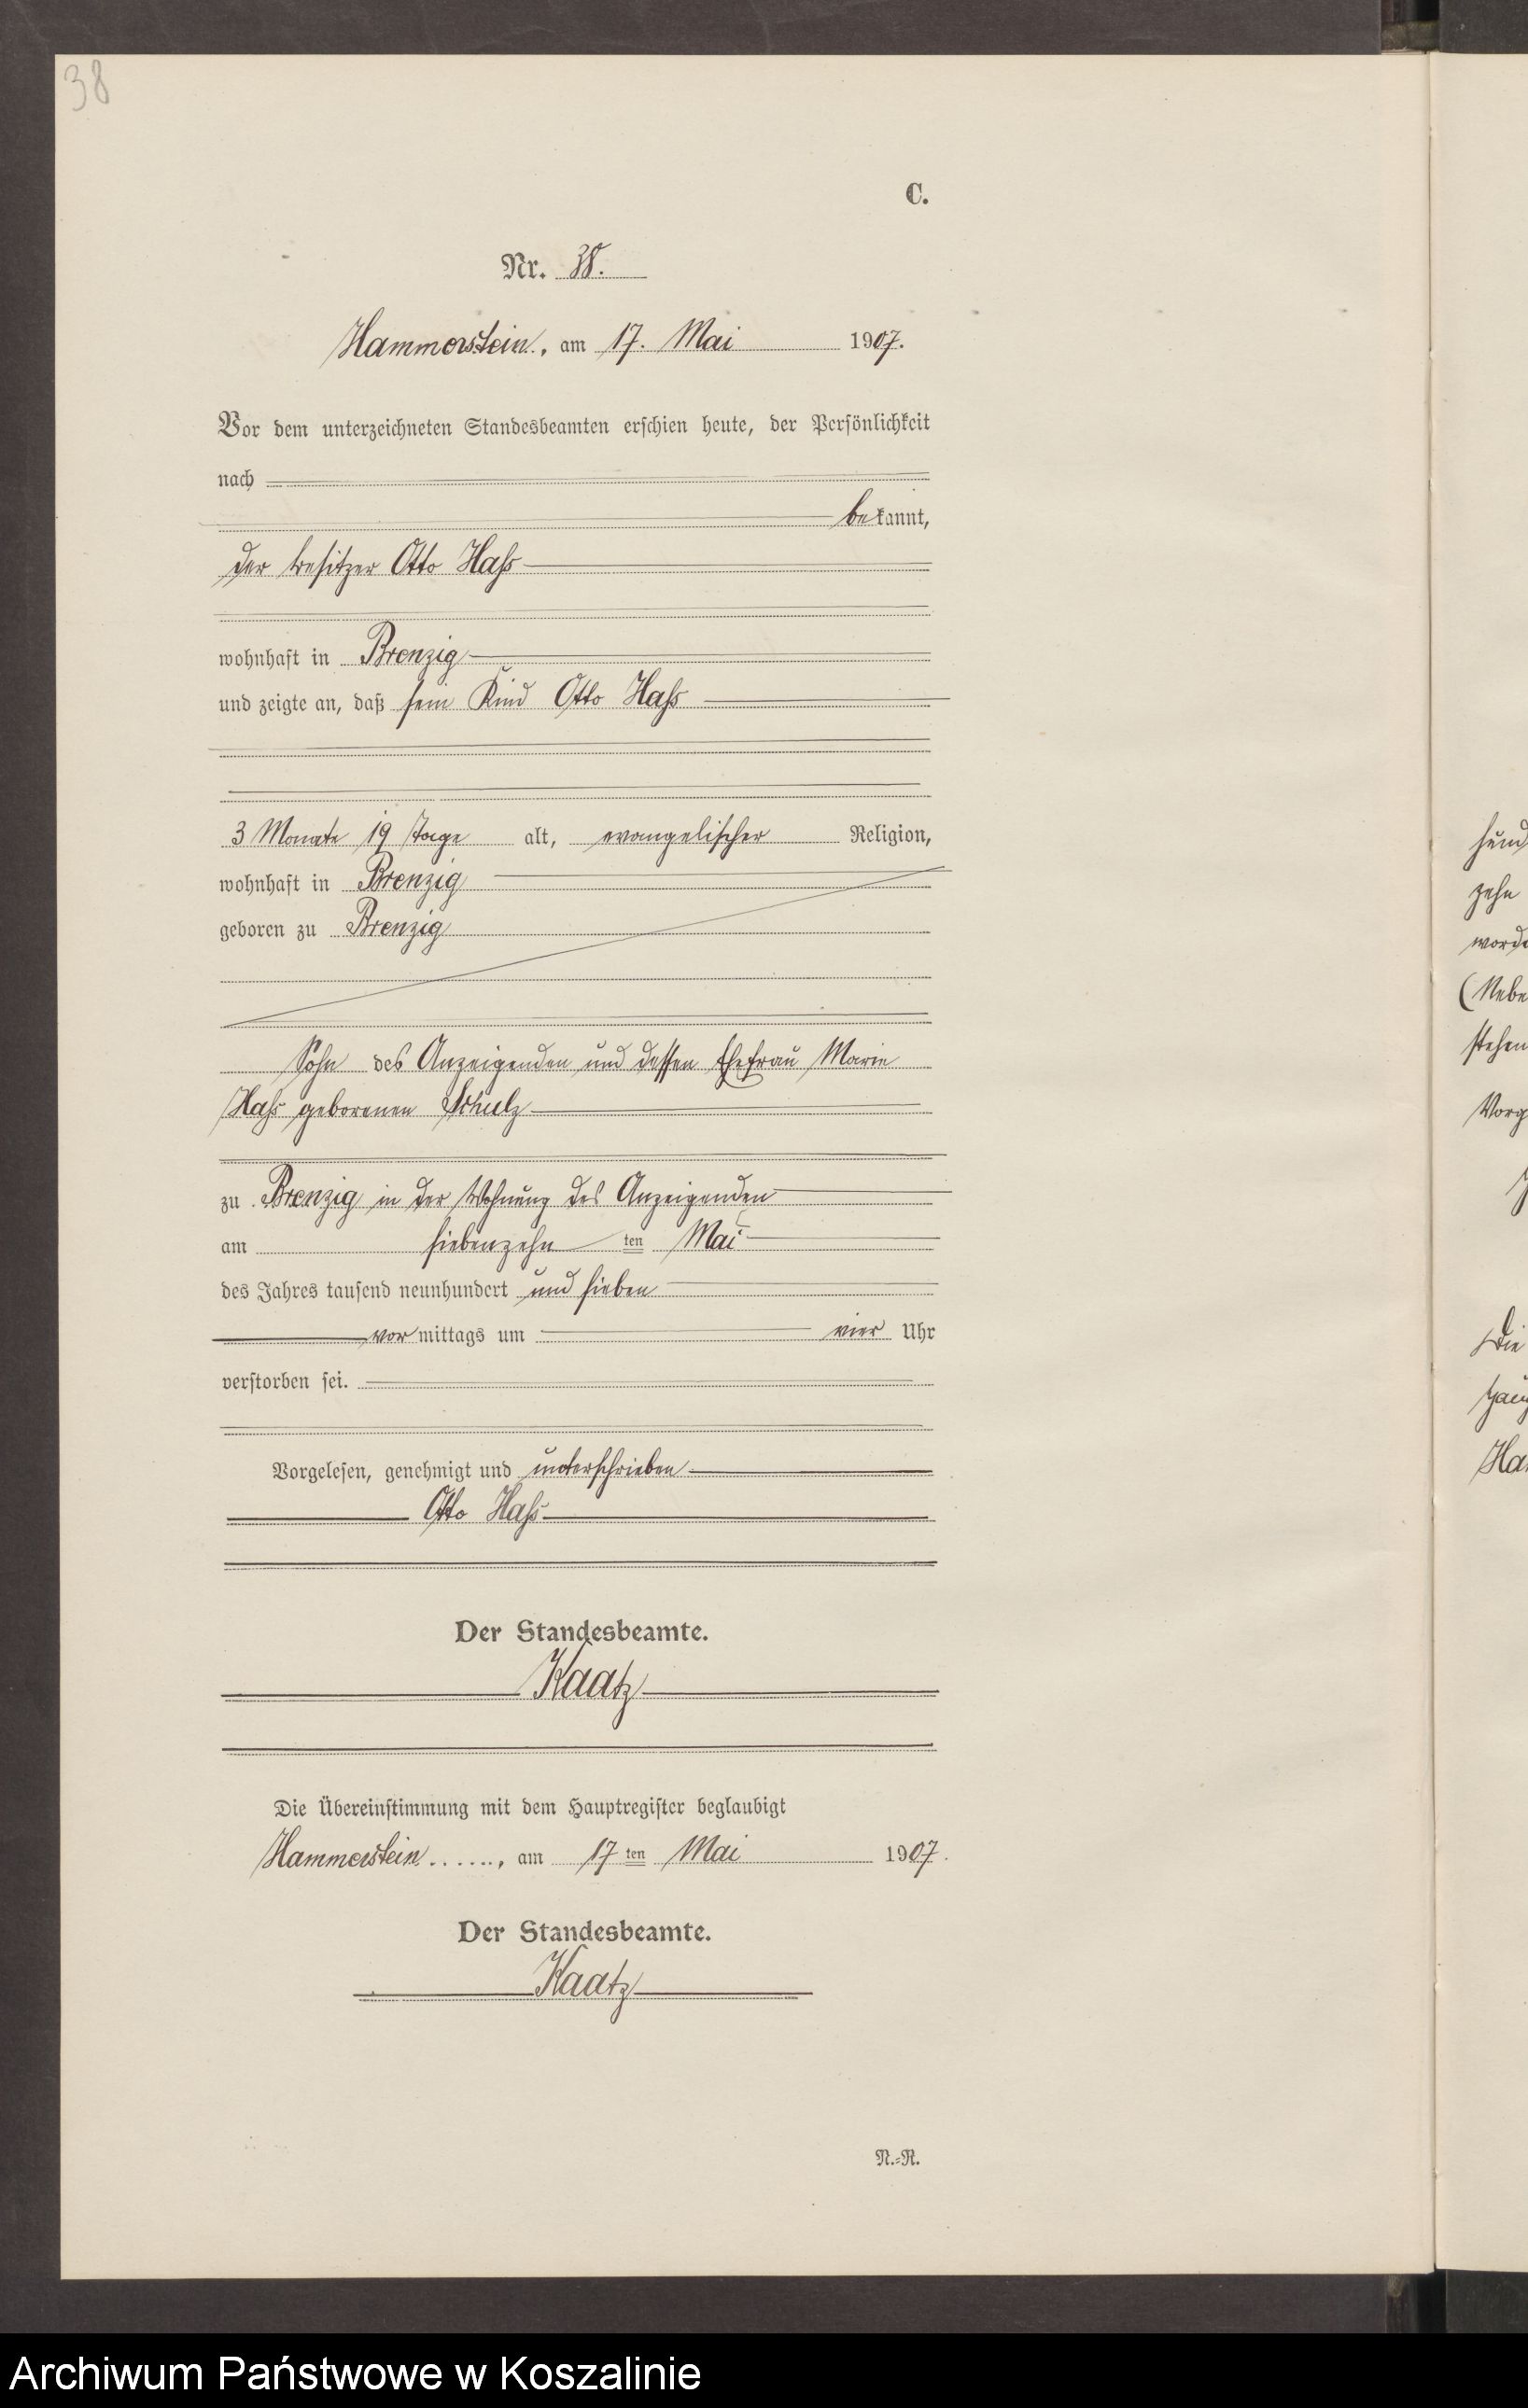 38
C.
Nr. 38.
Hammerstein, am 17. Mai 1907.
Vor dem unterzeichneten Standesbeamten erschien heute, der Persönlichkeit
nach
bekannt,
der Besitzer Otto Haß
wohnhaft in Brenzig
und zeigte an, daß sein Kind Otto Haß
3 Monate 19 Tage alt, evangelischer Religion,
wohnhaft in Brenzig
geboren zu Brenzig
Sohn des Anzeigenden und dessen Ehefrau Marie
Haß geborenen Schulz
zu Brenzig in der Wohnung des Anzeigenden
am siebenzehn ten Mai
des Jahres tausend neunhundert und sieben
vor mittags um vier Uhr
verstorben sei.
Vorgelesen, genehmigt und unterschrieben
Otto Haß
Der Standesbeamte.
Kaatz
Die Übereinstimmung mit dem Hauptregister beglaubigt
Hammerstein ......, am 17 ten Mai 1907.
Der Standesbeamte.
Kaatz
N.=R.
zehn
(Nebe
stehen
Vorg
Die
Ha
Archiwum Państwowe w Koszalinie